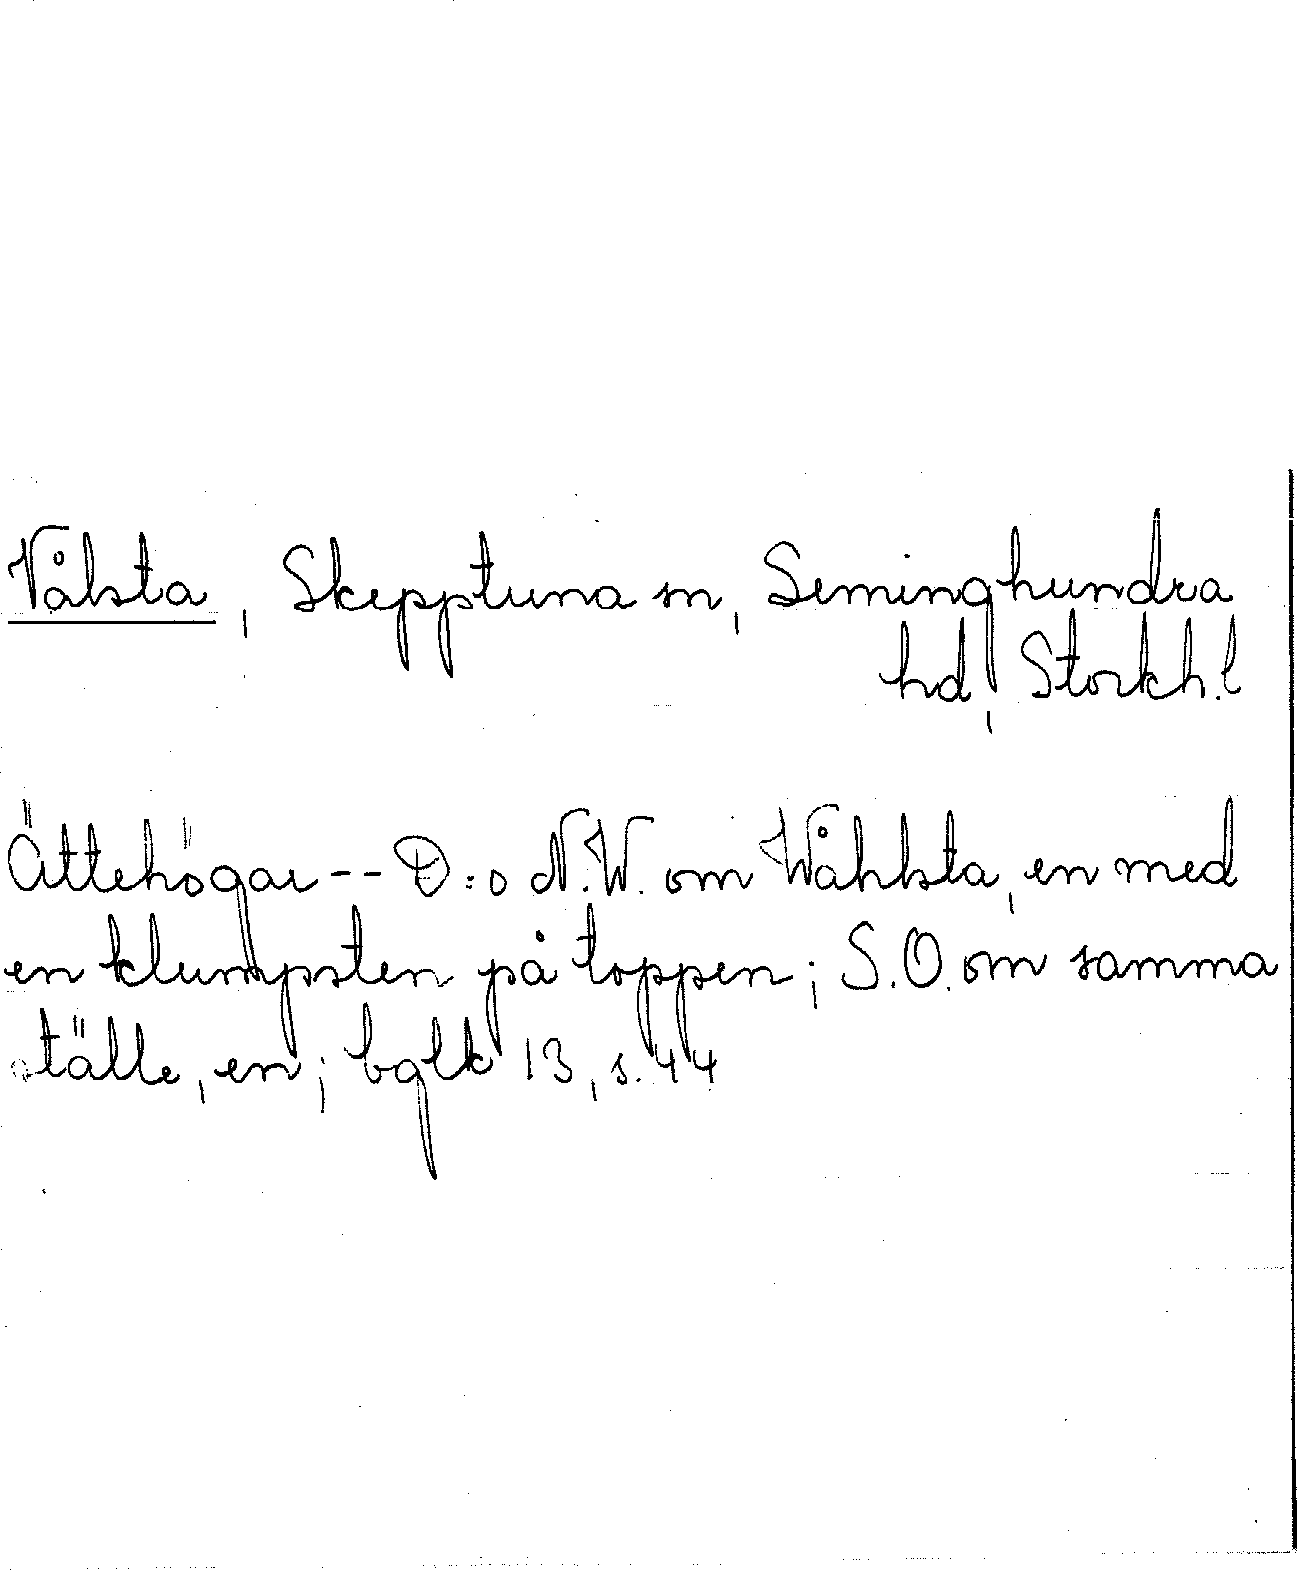 Vålsta, Skepptuna sn, Seminghundra
hd, Stockh.l
Ättehögar -- D:o N.W. om Wåhlsta, en med
en klumpsten på toppen; S.O. om samma
ställe, en; bglk 13, s. 44